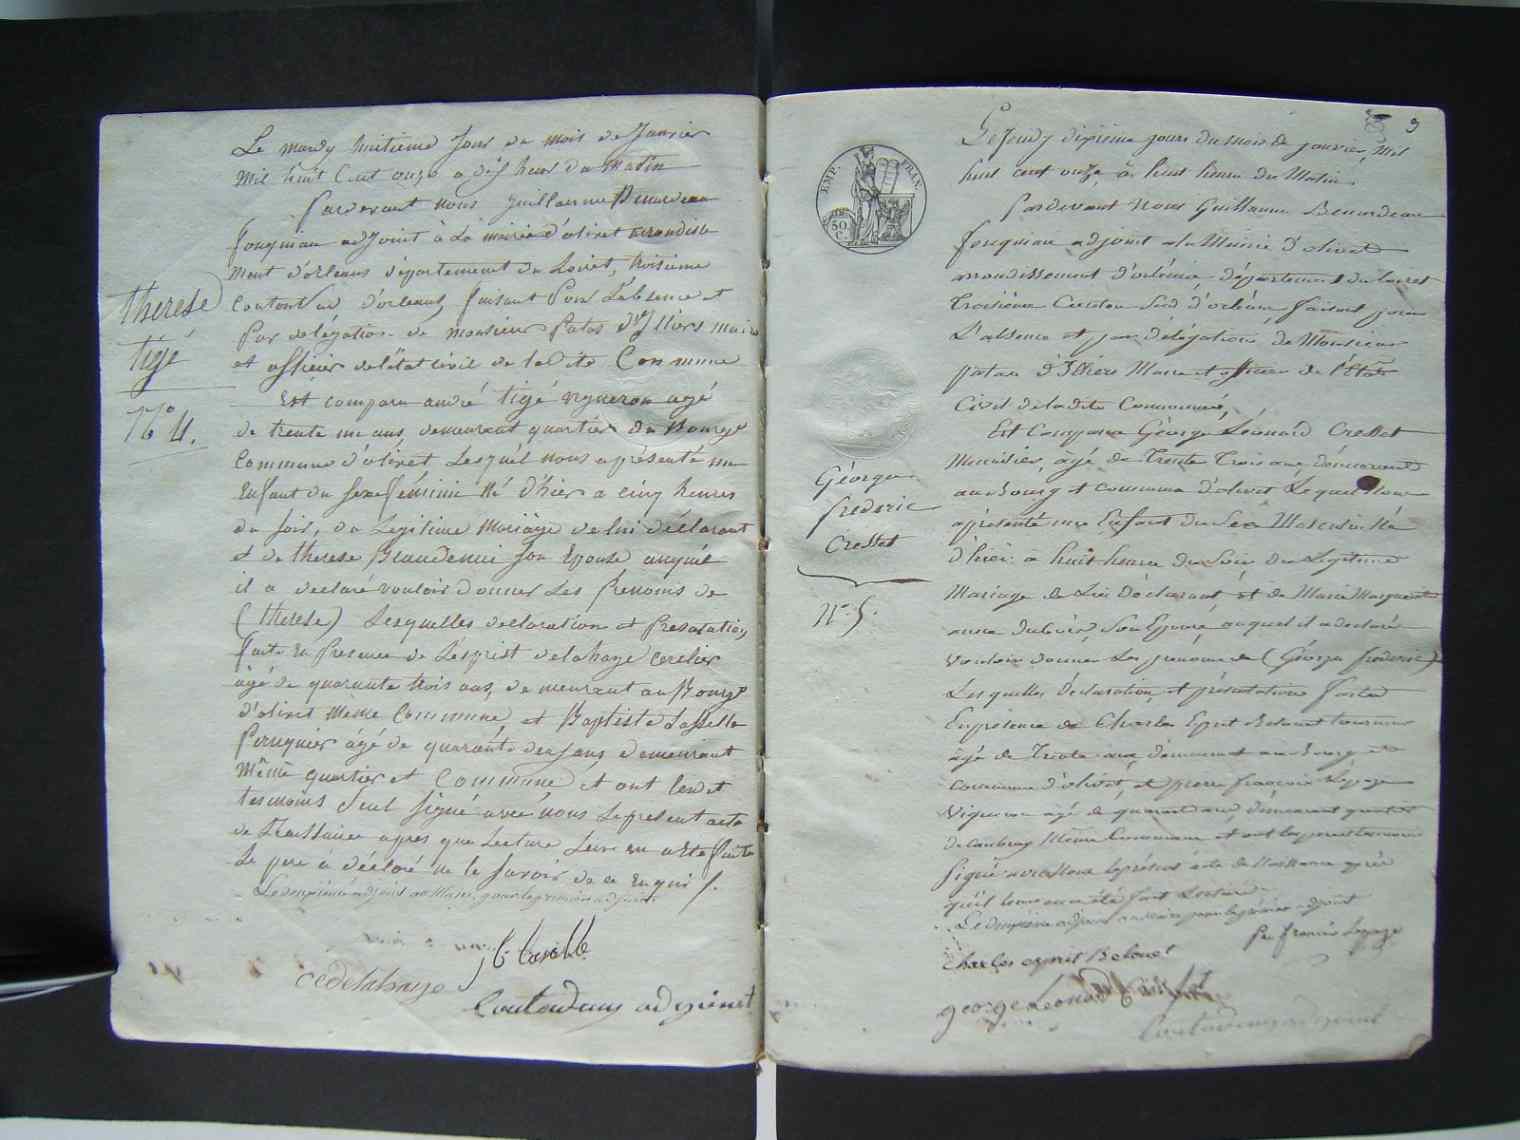 Le mardy huitieme Jour du mois de Janvier
Mil huit Cent onze a dix heur du Matin
Pardevant nous Guillaume Benardeau
fougniau adjoint à La mairie d'olivet arrondisse
ment d'orleans département du Loiret, troisieme
Canton Sud d'orleans, faisant Pour L'absence et
Par délégation de monsieur Patas d'Illiers maire
et officier de l'état civil de ladite Commune
Est comparu andré tigé vigneron agé
de trente un ans, demeurant quartier du Bourg
Commune d'olivet Lesquél nous a présenté un
Enfant du sexe féminin Né d'hier a cinq heures
du soir, du Legitime Mariage de lui déclarant
et de therese Beaudenui son Epouse auquél
il a declaré vouloir donner Les Prénoms de
(therese) Lesquelles declaration et Presentation
faite En Presence de Lesprist delahaye cerclier
âgé de quarante trois ans, demeurant au Bourg
d'olivet Même Commune, et Baptiste Lasselle
Peruquier âgé de quarante deux ans demeurant
Même quartier et Commune et ont les dt
temoins seul signé avec nous Le present acte
de Naissance apres que Lecture Leur en a été faite
Le pere à déclaré ne le savoir de ce Enquis /.
Le deuxième adjoint au Maire, pour le premier adjoint
B Laselle
CE delahaye
Couteau adjoint
therese
tigé
N° 4.
EMP. FRAN.
50
C.
9
Le Jeudy dixième jour du mois de janvier, Mil
huit cent onze, à huit heure du Matin.
Pardevant Nous Guillaume Benardeau
fougniau adjoint a la Mairie d'olivet
arrondissement d'orléans, département du Loiret
Troisième Canton Sud d'orléans faisant pour
L'absence et par délégation de Monsieur
patas d'Illiers Maire et officier de l'État
Civil de ladite Commune,
Est Comparu George Léonard Cresset
Menuisier, âgé de Trente Trois ans, demeurant
au bourg et commune d'olivet Lequel Nous
a présenté un Enfant du Sex Masculin Né
d'hier à huit heure du Soir du Légitime
Mariage de Lui Déclarant et de Marie Marguerite
anne Son Epouse, auquel il a déclaré
vouloir donner Les prénoms de (Géorge frederic)
Lesquelles déclaration et présentation faites
En présence de Charles Esprit Belouet tourneur
âgé de Trente ans, demeurant au bourg et
commune d'olivet, et pierre françois Lepage
Vigneron agé de quarante ans, demeurant quartier
de Même Commune et ont les pere et temoins
Signé avec Nous le présent acte de Naissance après
qu'il leur en a été fait Lecture
Le deuxième adjoint au Maire pour le premier adjoint
Pe François Lepage
Charles esprit Belouet
george Leonard
Géorge
frederic
Cresset
N° 5.